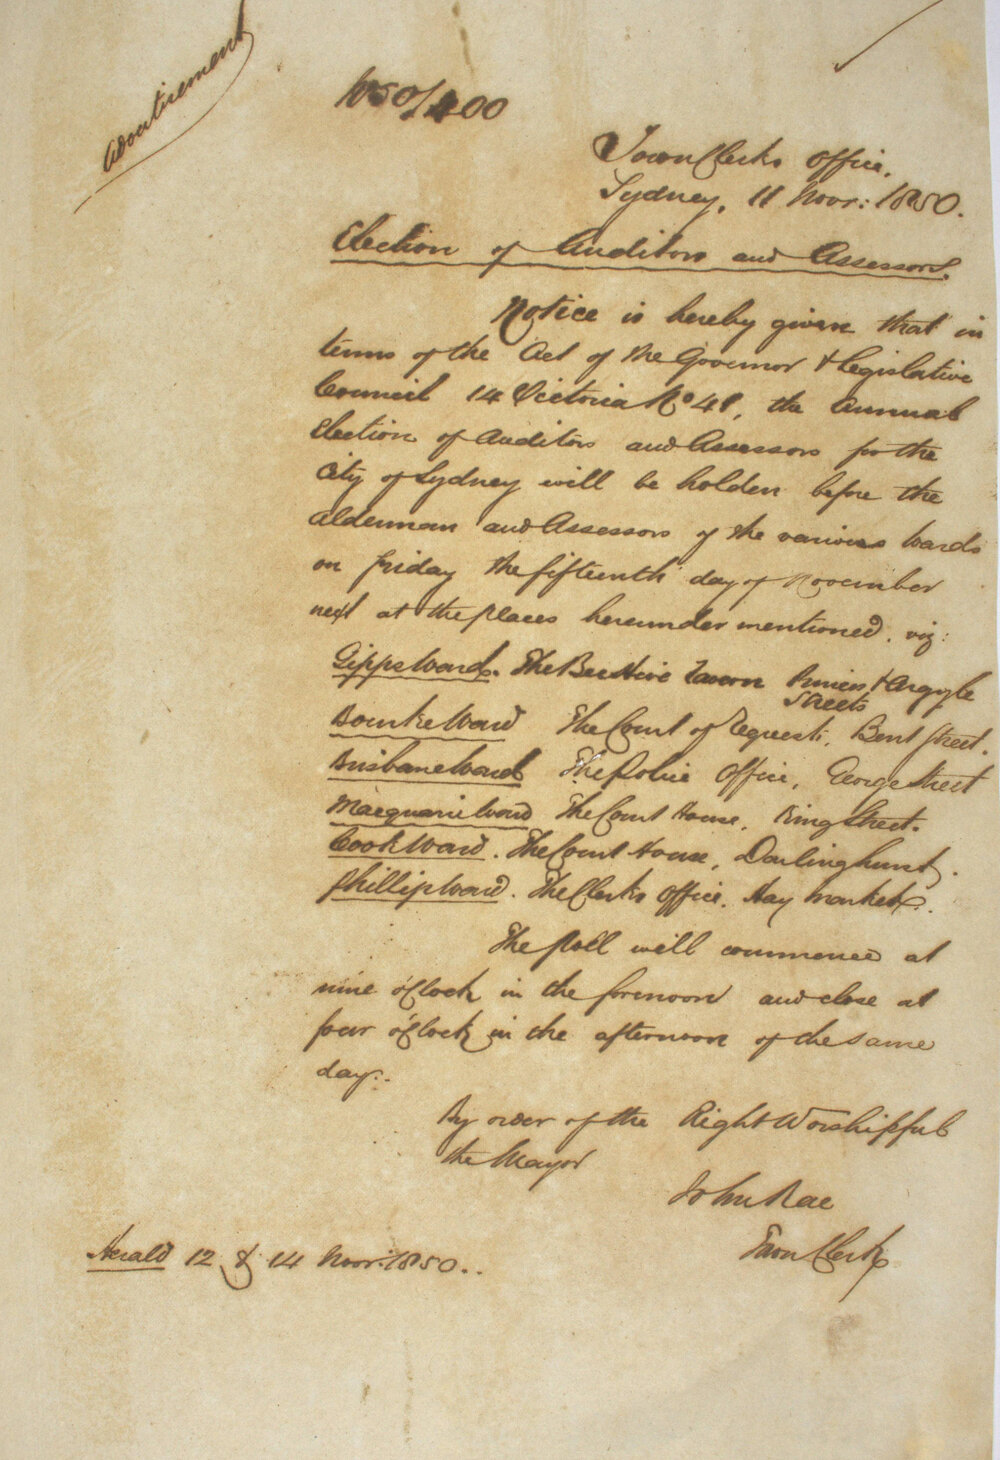 Advertisement
1850/400
Town Clerks Office,
Sydney, 11 Novr: 1850.
Election of Auditors and Assessors.
Notice is hereby given that in
terms of the Act of the Governor & Legislative
Council 14 Victoria No 41, the Annual
Election of Auditors and Assessors for the
City of Sydney will be holden before the
Alderman and Assessors of the various Wards
on Friday the fifteenth day of November
next at the places hereunder mentioned, viz:
Gipps Ward. The Bee Hive Tavern & Argyle
Streets
Bourke Ward The Court of Requests, Bent Street.
Brisbane Ward The Police Office, George Street
Macquarie Ward The Court House, King Street.
Cook Ward. The Court House, Darlinghurst.
Phillip Ward. The Clerks Office, Hay Market.
The Poll will commence at
nine o'Clock in the forenoon and close at
four o'Clock in the afternoon of the same
day.
By order of the Right Worshipful
the Mayor
John Rae
Town Clerk
Herald 12 & 14 Novr: 1850..